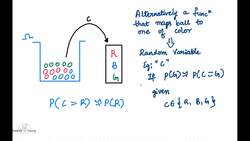 C
Ω
R
B
G
P(C = R) ⇒ P(R)
Alternatively a func^n
that maps ball to
one of color
Random Variable
Eg: "C"
If P(G) ⇒ P(C = G)
given
C ∈ {R, B, G}